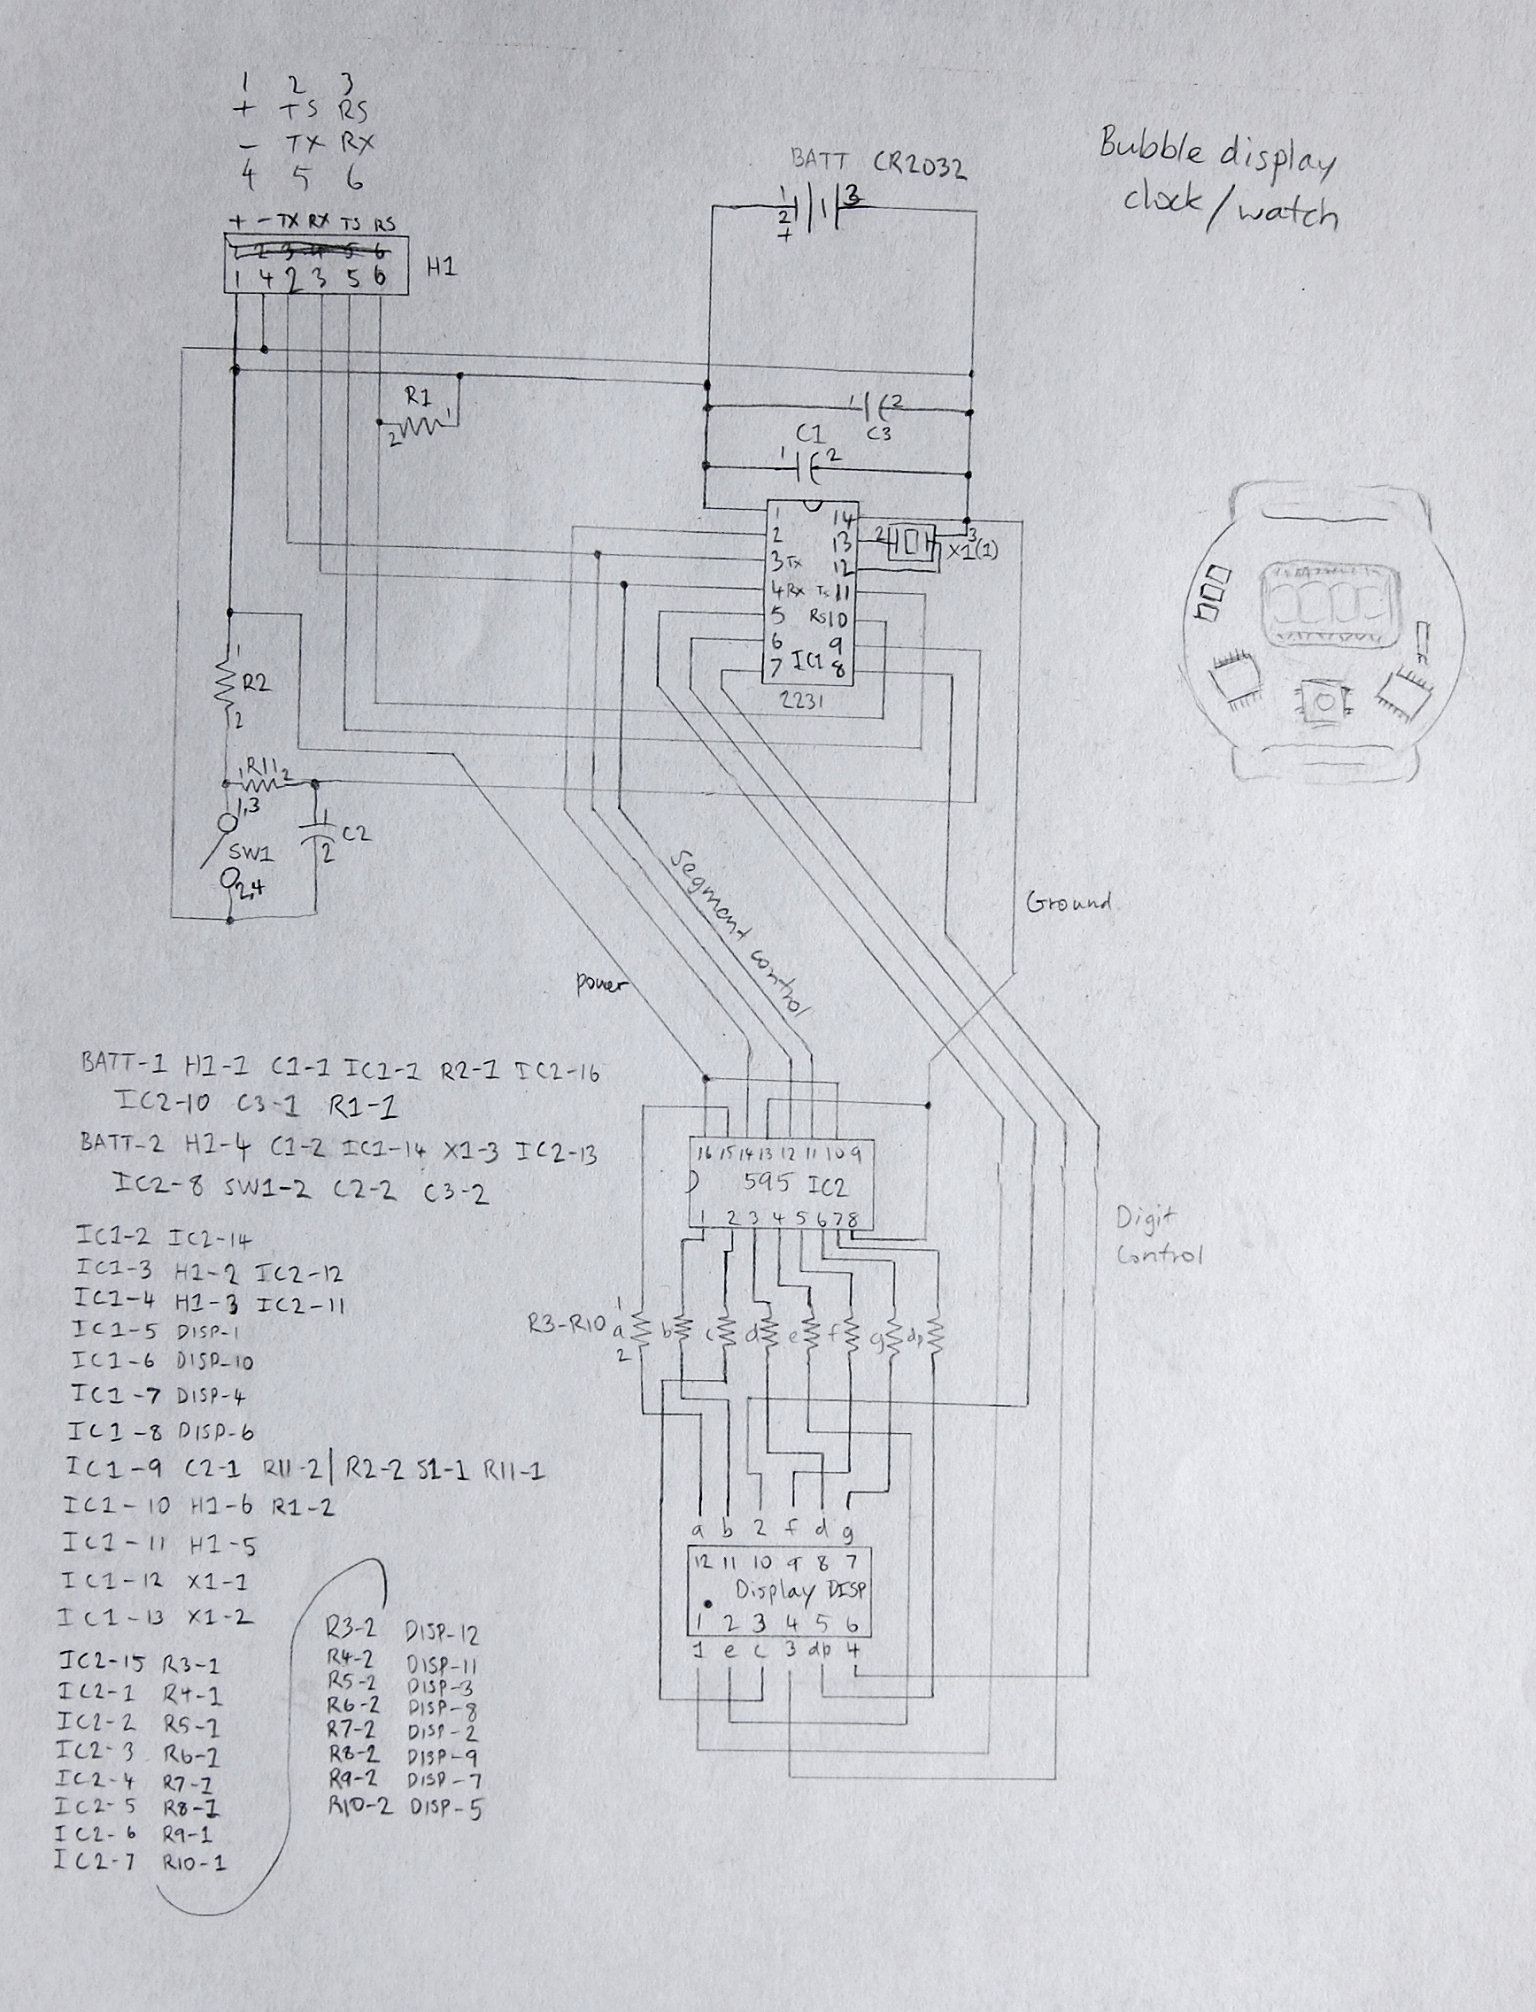 1 2 3
+ TS RS
- TX RX
4 5 6
+ - TX RX TS RS
1 2 3 4 5 6
1 4 2 3 5 6
H1
BATT CR2032
1 2 + 3
Bubble display
clock/watch
R1
2 1
1 2
C3
C1
1 2
1 14
2 13
3 TX 12
4 RX TS 11
5 RS 10
6 9
7 IC1 8
2231
2 3
X1(1)
1
R2
2
1 R11 2
1,3
SW1
2,4
1
C2
2
Segment control
Ground
power
BATT-1 H1-1 C1-1 IC1-1 R2-1 IC2-16
IC2-10 C3-1 R1-1
BATT-2 H1-4 C1-2 IC1-14 X1-3 IC2-13
IC2-8 SW1-2 C2-2 C3-2
IC1-2 IC2-14
IC1-3 H1-2 IC2-12
IC1-4 H1-3 IC2-11
IC1-5 DISP-1
IC1-6 DISP-10
IC1-7 DISP-4
IC1-8 DISP-6
IC1-9 C2-1 R11-2 | R2-2 S1-1 R11-1
IC1-10 H1-6 R1-2
IC1-11 H1-5
IC1-12 X1-1
IC1-13 X1-2
IC2-15 R3-1
IC2-1 R4-1
IC2-2 R5-1
IC2-3 R6-1
IC2-4 R7-1
IC2-5 R8-1
IC2-6 R9-1
IC2-7 R10-1
R3-2 DISP-12
R4-2 DISP-11
R5-2 DISP-3
R6-2 DISP-8
R7-2 DISP-2
R8-2 DISP-9
R9-2 DISP-7
R10-2 DISP-5
16 15 14 13 12 11 10 9
595 IC2
1 2 3 4 5 6 7 8
Digit
control
1
R3-R10 a b c d e f g dp
2
a b 2 f d g
12 11 10 9 8 7
Display DISP
1 2 3 4 5 6
1 e c 3 dp 4